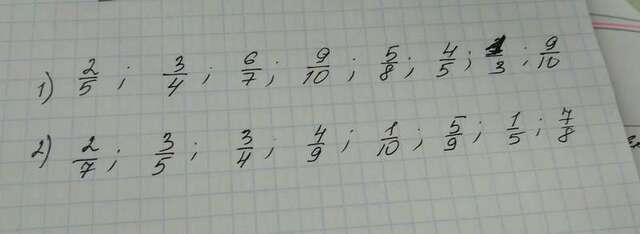 1) 2/5 ; 3/4 ; 6/7 ; 9/10 ; 5/8 ; 4/5 ; 1/3 ; 9/10
2) 2/7 ; 3/5 ; 3/4 ; 4/9 ; 1/10 ; 5/9 ; 1/5 ; 7/8